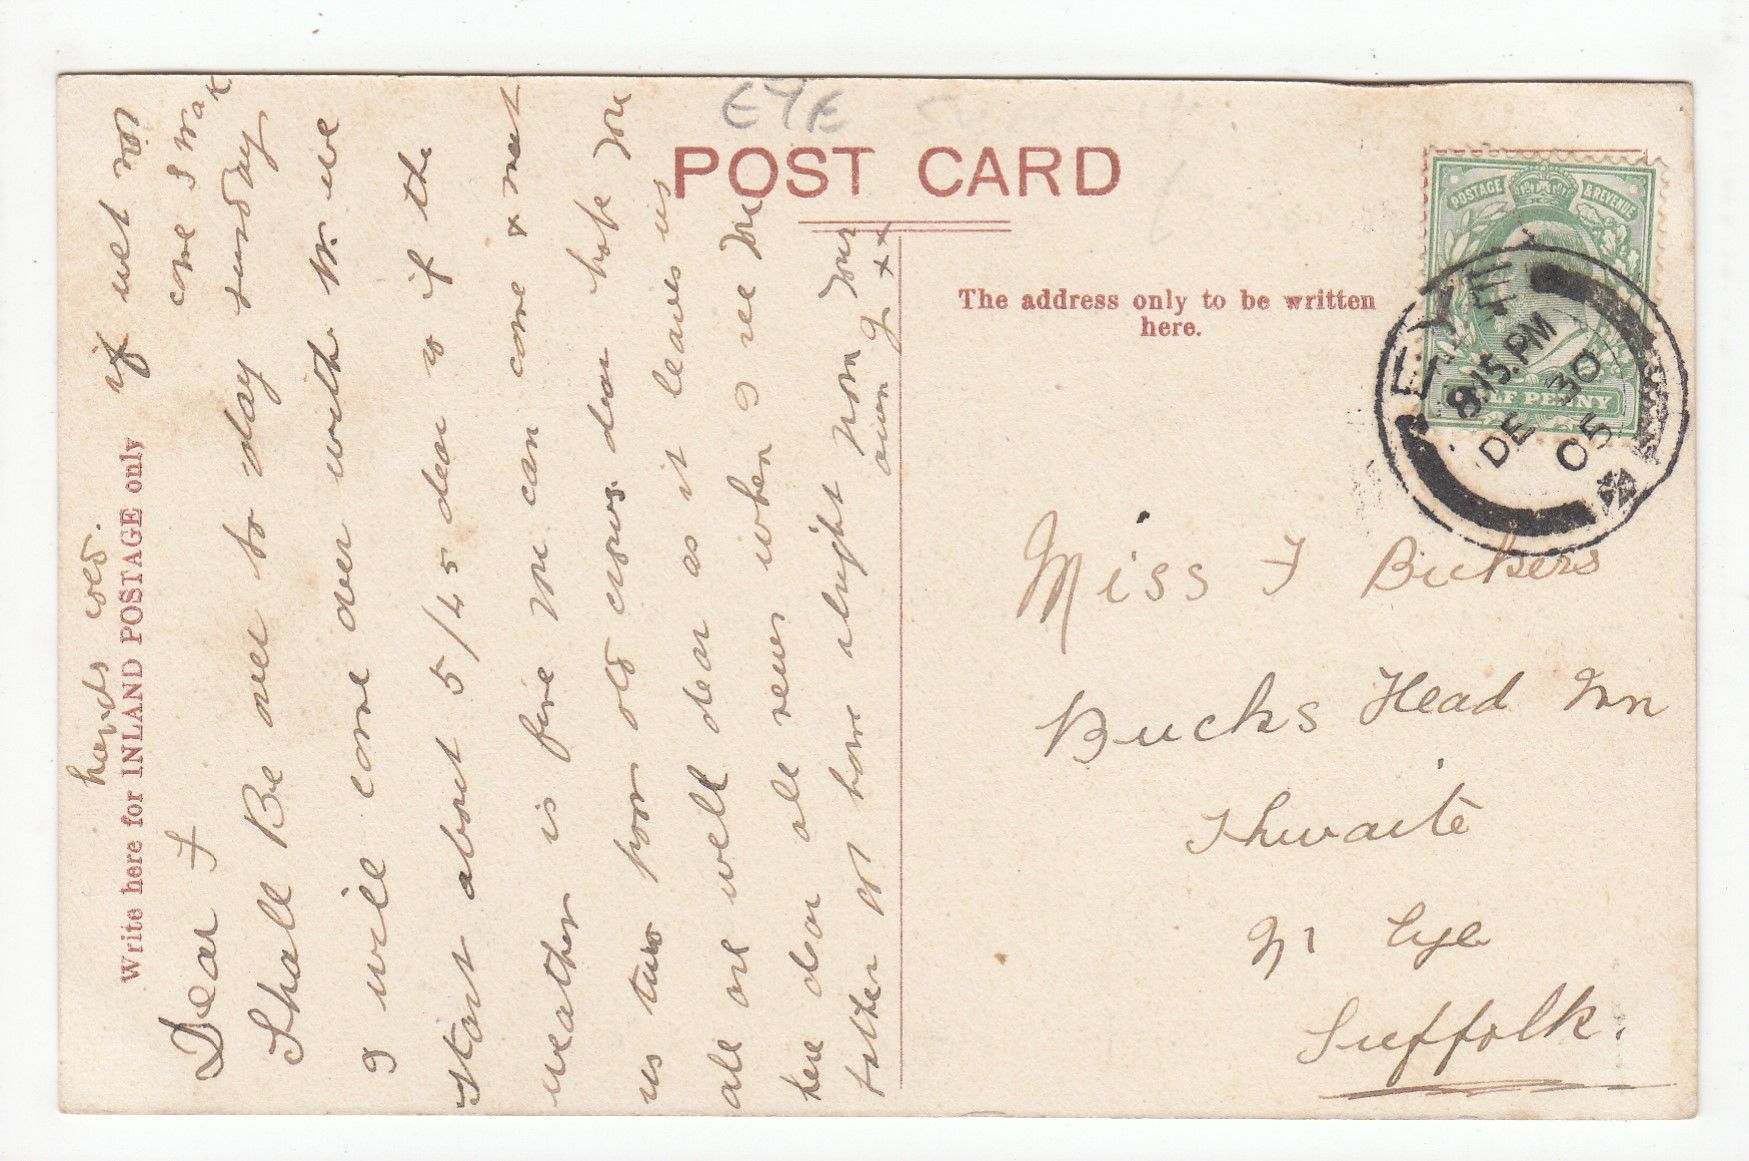 EYE
POST CARD
The address only to be written
here.
Write here for INLAND POSTAGE only
POSTAGE & REVENUE
HALF PENNY
EYE
8.15.PM
DE 30
05
Miss F Bickers
Bucks Head Inn
Thwaite
Nr Eye
Suffolk.
Dear F
Shall Be over to day sunday
I will come over with Mr we
start about 5/45 dear so if the
weather is fine you can come & meet
us two poor old crows. dear hope you
all are well dear as it leaves us
here dear all news when I see you
father got home alright from your
own g xx
if wet no
come I
hands cold.